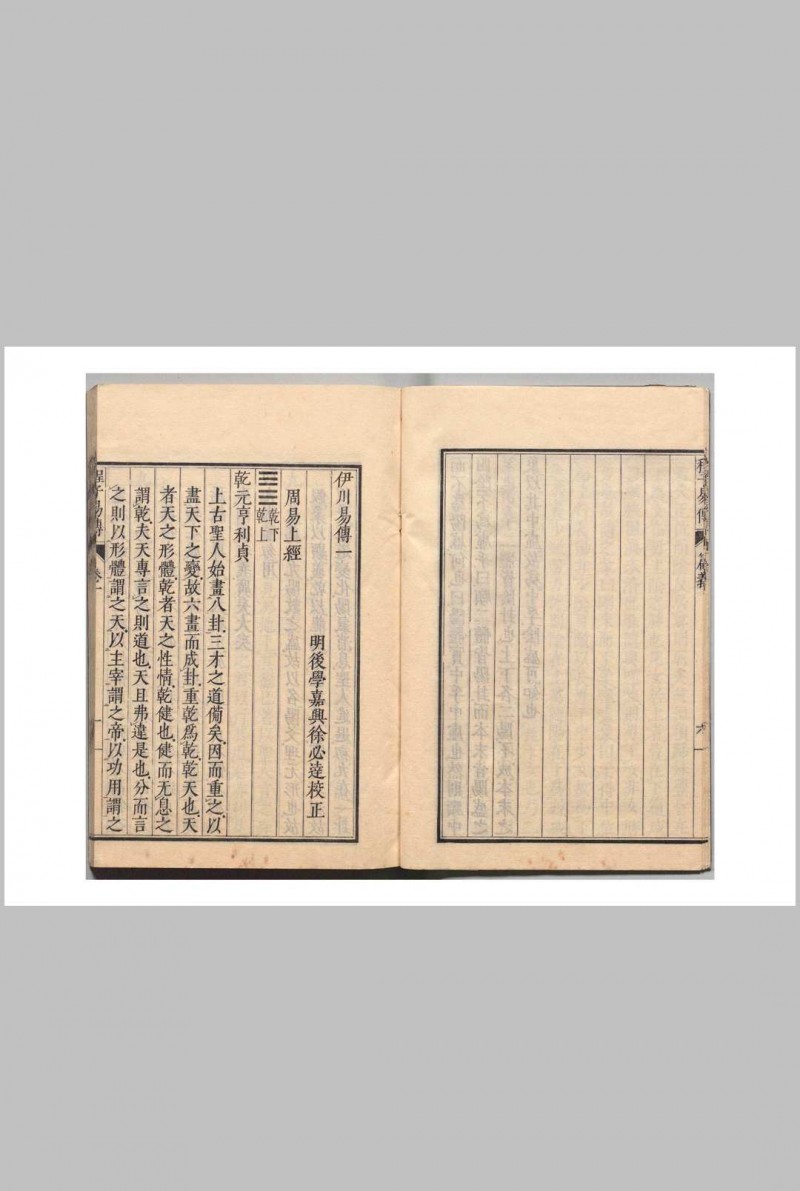 程子易傳
六
伊川易傳一
明後學嘉興徐必達校正
周易上經
乾下
乾上
乾元亨利貞
上古聖人始畫八卦三才之道備矣因而重之以
盡天下之變故六畫而成卦重乾爲乾乾天也天
者天之形體乾者天之性情乾健也健而无息之
謂乾夫天專言之則道也天且弗違是也分而言
之則以形體謂之天以主宰謂之帝以功用謂之
程子易傳
卷一
一